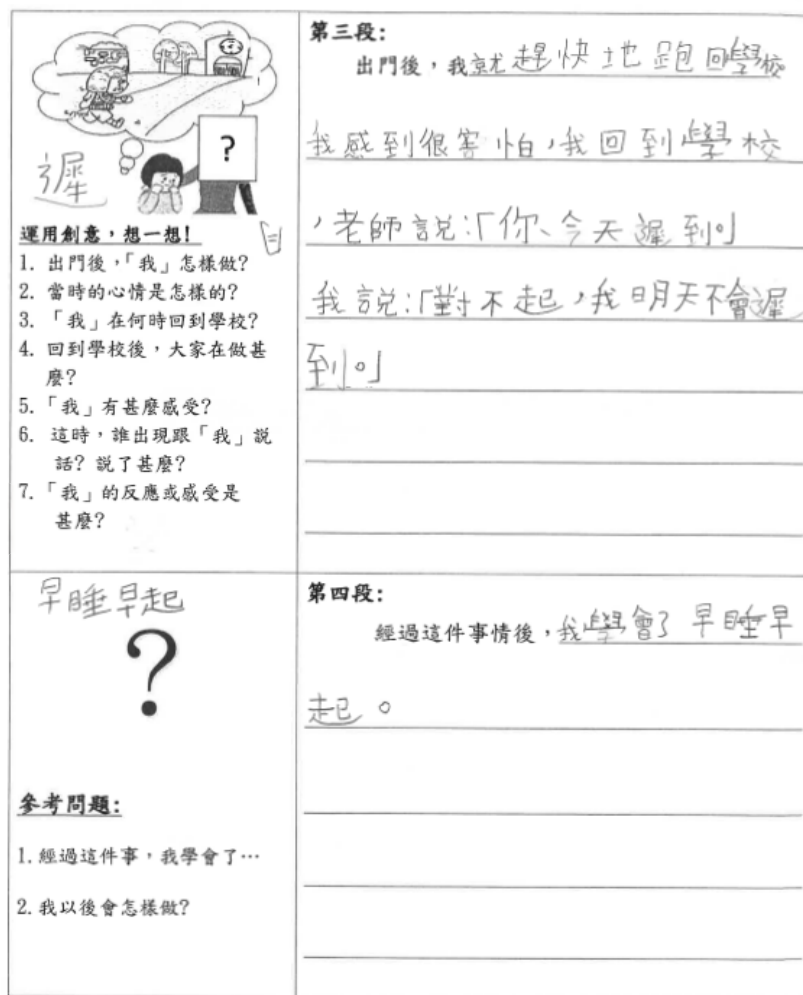 ?
遲
運用創意，想一想!
1. 出門後，「我」怎樣做?
2. 當時的心情是怎樣的?
3. 「我」在何時回到學校?
4. 回到學校後，大家在做甚
麼?
5. 「我」有甚麼感受?
6. 這時，誰出現跟「我」說
話? 說了甚麼?
7. 「我」的反應或感受是
甚麼?
第三段:
出門後，我就趕快地跑回學校
我感到很害怕，我回到學校
，老師說:「你今天遲到。」
我說:「對不起，我明天不會遲
到。」
早睡早起
?
參考問題:
1. 經過這件事，我學會了…
2. 我以後會怎樣做?
第四段:
經過這件事情後，我學會了早睡早
起。